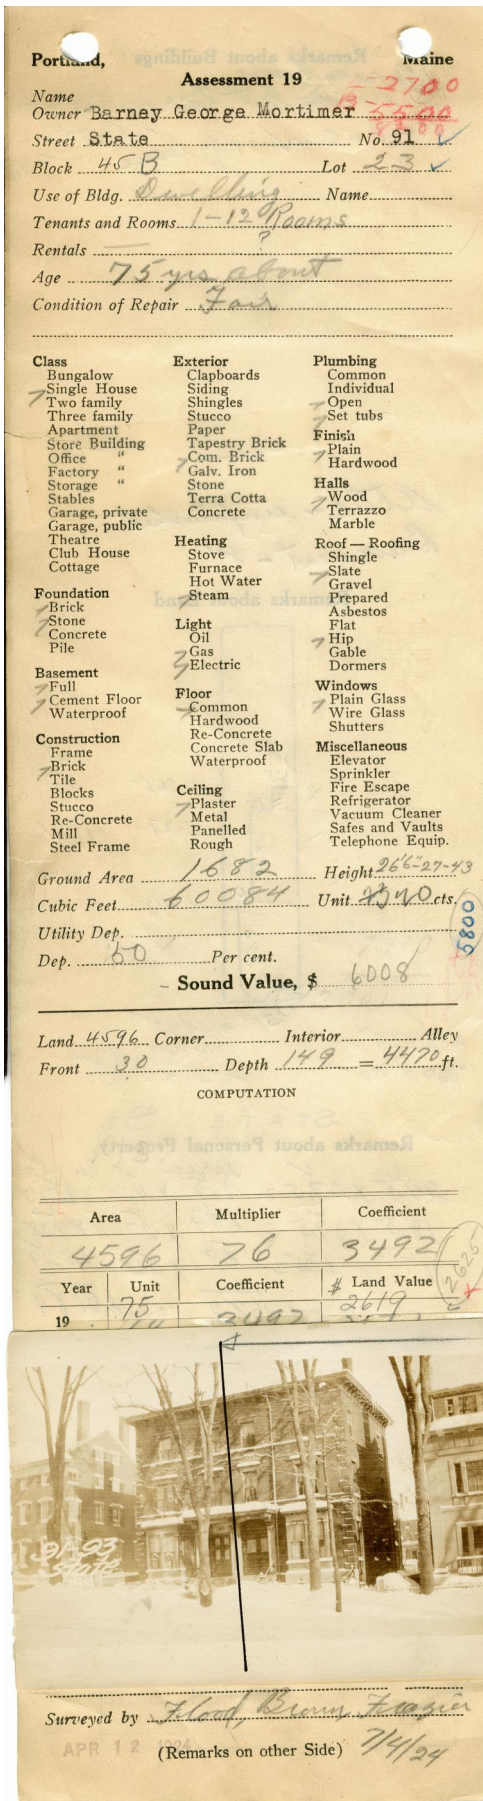 Portland, Maine
Assessment 19
— 2700
B — 5500
8200
Name
Owner Barney George Mortimer
Street State No. 91
Block 45 B Lot 23
Use of Bldg. Dwelling Name
Tenants and Rooms 1-12 Rooms
Rentals — ?
Age 75 yrs about
Condition of Repair Fair
Class
Bungalow
Single House
Two family
Three family
Apartment
Store Building
Office "
Factory "
Storage "
Stables
Garage, private
Garage, public
Theatre
Club House
Cottage
Foundation
Brick
Stone
Concrete
Pile
Basement
Full
Cement Floor
Waterproof
Construction
Frame
Brick
Tile
Blocks
Stucco
Re-Concrete
Mill
Steel Frame
Exterior
Clapboards
Siding
Shingles
Stucco
Paper
Tapestry Brick
Com. Brick
Galv. Iron
Stone
Terra Cotta
Concrete
Heating
Stove
Furnace
Hot Water
Steam
Light
Oil
Gas
Electric
Floor
Common
Hardwood
Re-Concrete
Concrete Slab
Waterproof
Ceiling
Plaster
Metal
Panelled
Rough
Plumbing
Common
Individual
Open
Set tubs
Finish
Plain
Hardwood
Halls
Wood
Terrazzo
Marble
Roof — Roofing
Shingle
Slate
Gravel
Prepared
Asbestos
Flat
Hip
Gable
Dormers
Windows
Plain Glass
Wire Glass
Shutters
Miscellaneous
Elevator
Sprinkler
Fire Escape
Refrigerator
Vacuum Cleaner
Safes and Vaults
Telephone Equip.
Ground Area 1682 Height 26'6"-27-43
Cubic Feet 60084 Unit 20 cts.
5800
Utility Dep.
Dep. 50 Per cent.
Sound Value, $ 6008
Land 4596 Corner Interior Alley
Front 30 Depth 149 = 4470 ft.
COMPUTATION
Area Multiplier Coefficient
4596 76 3492
2625
Year Unit Coefficient $ Land Value
75 2619
19 3492
91-93
State
Surveyed by Flood, Brown, Frazier
APR 12 1924
(Remarks on other Side) 7/4/24